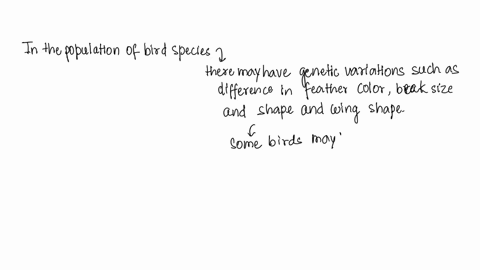 In the population of bird species
there may have genetic variations such as
difference in feather color, beak size
and shape and wing shape.
some birds may